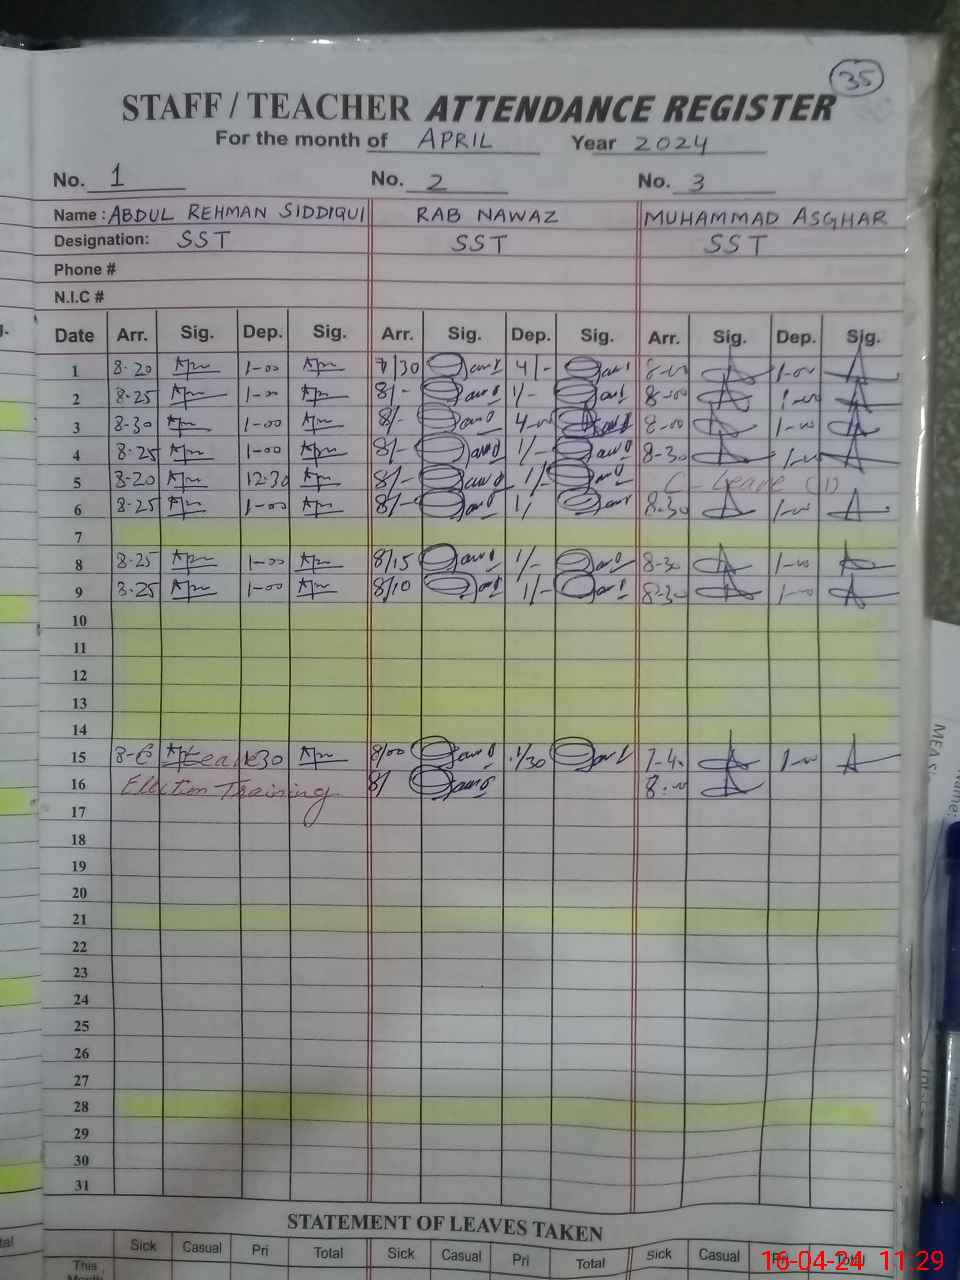 35
STAFF / TEACHER ATTENDANCE REGISTER
For the month of APRIL Year 2024
No. 1 No. 2 No. 3
Name : ABDUL REHMAN SIDDIQUI RAB NAWAZ MUHAMMAD ASGHAR
Designation: SST SST SST
Phone #
N.I.C #
Date Arr. Sig. Dep. Sig. Arr. Sig. Dep. Sig. Arr. Sig. Dep. Sig.
1 8-20 1-00 7/30 4/- 8-00 1-00
2 8-25 1-00 8/- 1/- 8-00 1-00
3 8-30 1-00 8/- 4-00 8-00 1-00
4 8-25 1-00 8/- 1/- 8-30 1-00
5 8-20 12-30 8/- 1/- C-Leave (1)
6 8-25 1-00 8/- 1/ 8-30 1-00
7
8 8-25 1-00 8/15 1/- 8-30 1-00
9 8-25 1-00 8/10 1/- 8-30 1-00
10
11
12
13
14
15 Leave 8/00 1/30 7-40 1-00
16 Election Training 8/ 8-00
17
18
19
20
21
22
23
24
25
26
27
28
29
30
31
STATEMENT OF LEAVES TAKEN
Sick Casual Pri Total Sick Casual Pri Total Sick Casual Pri Total
This
Month
16-04-24 11:29